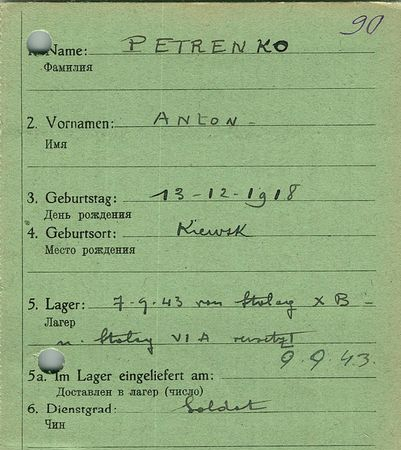 90
1. Name: PETRENKO
Фамилия
2. Vornamen: ANTON -
Имя
3. Geburtstag: 13-12-1918
День рождения
4. Geburtsort: Kiewsk
Место рождения
5. Lager: 7-9-43 von Stalag X B -
Лагер
n. Stalag VI A versetzt
9.9.43.
5a. Im Lager eingeliefert am:
Доставлен в лагер (число)
6. Dienstgrad: Soldat
Чин